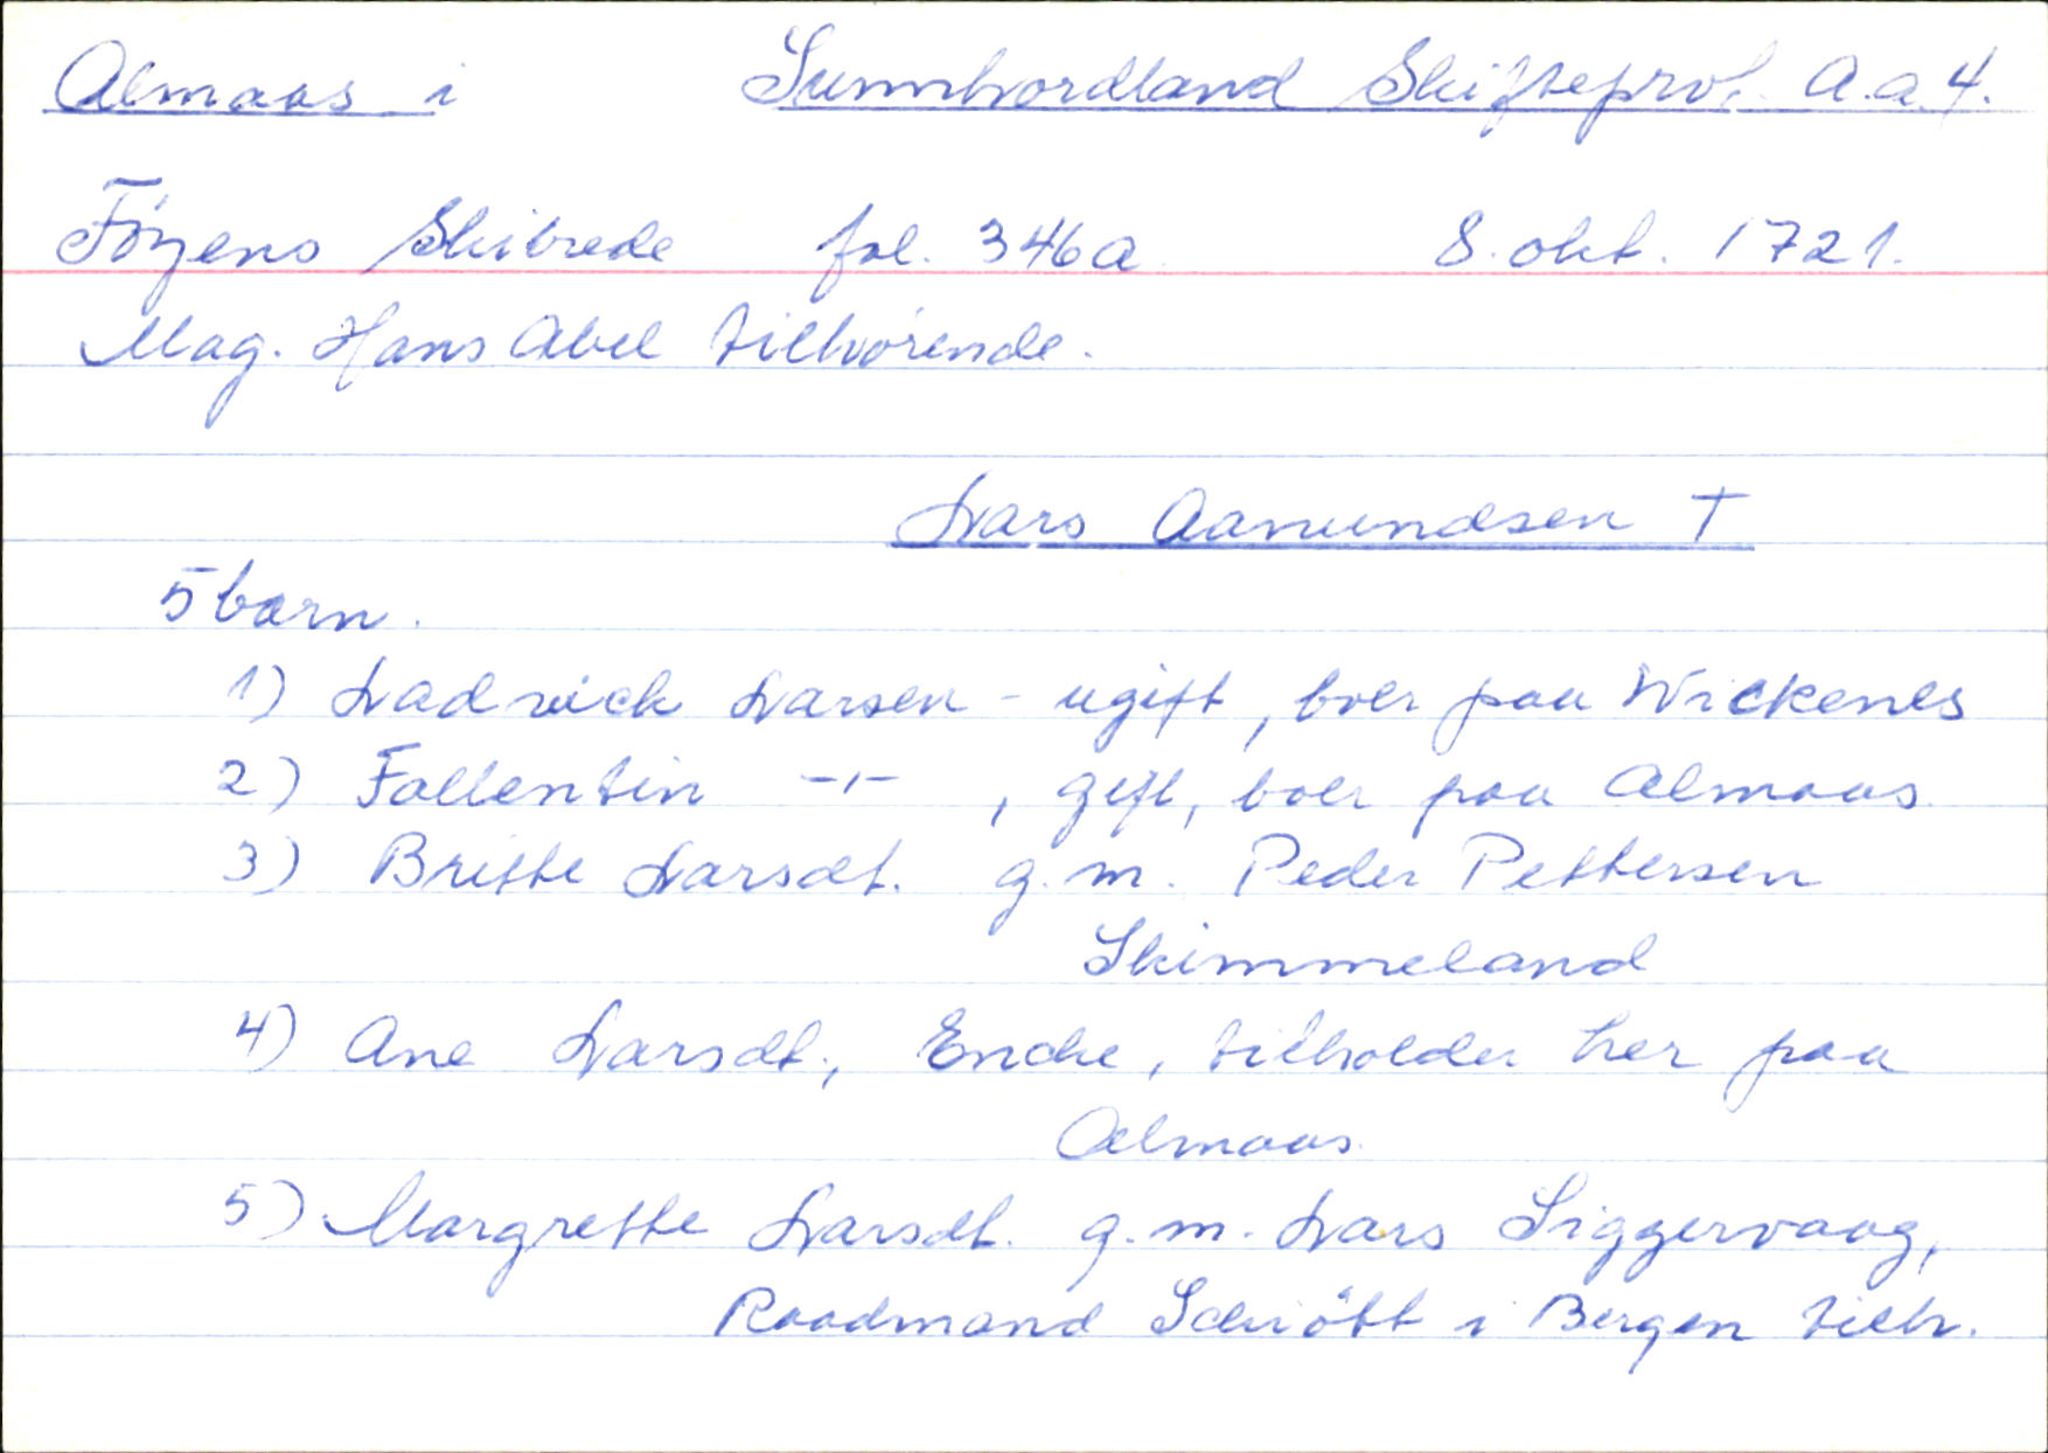 Almaas i Sunnhordland Skifteprot. A.a.4.
Föyens Skibrede fol. 346a 8. okt. 1721.
Mag. Hans Abel tilhörende.
Lars Aamundsen †
5 barn.
1) Ladvick Larsen - ugift, boer paa Wickenes
2) Fallentin -"- , gift, boer paa Almaas
3) Britte Larsdt. g.m. Peder Pettersen
Skimmeland
4) Ane Larsdt., Encke, tilholder her paa
Almaas
5) Margrette Larsdt. g.m. Lars Siggervaag,
Raadmand Schrött i Bergen tilh.